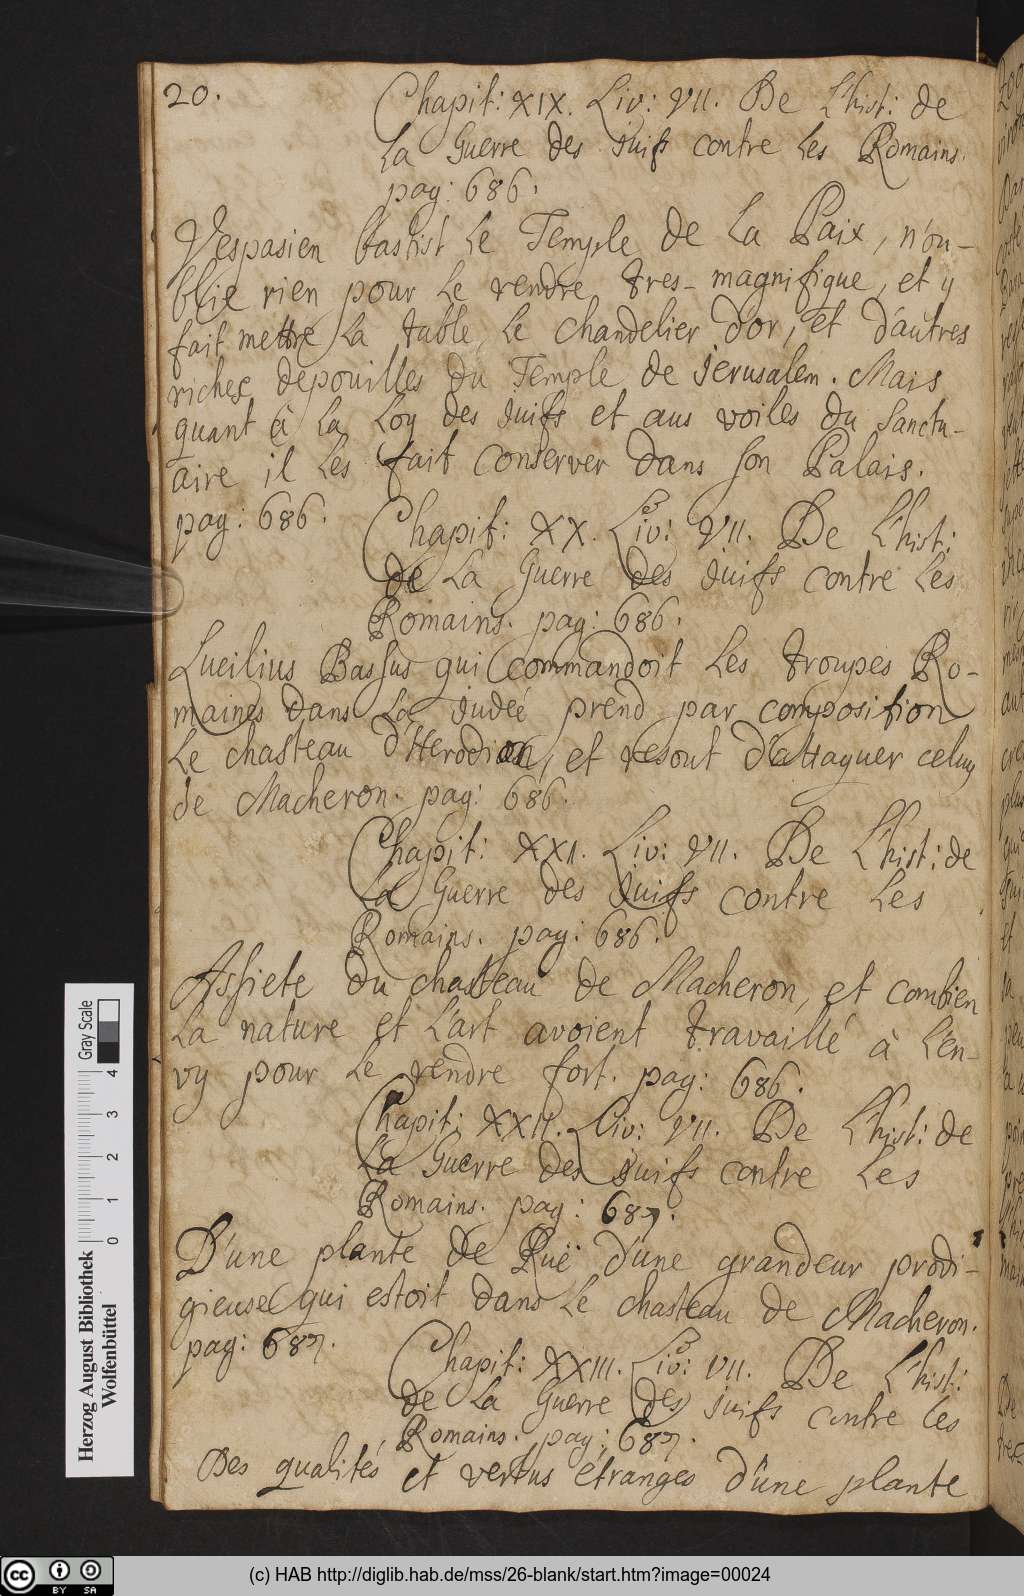 20.
Chapit: XIX. Liv: VII. De L'hist: de
La Guerre des Juifs contre Les Romains.
pag: 686.
Vespasien bastist Le Temple de La Paix, n'ou-
blie rien pour Le rendre tres-magnifique, et y
fait mettre La table, Le chandelier d'or, et d'autres
riches depouilles du Temple de Jerusalem. Mais
quant à La Loy des Juifs et aus voiles du Sanctu-
aire il Les fait conserver dans son Palais.
pag: 686.
Chapit: XX. Liv: VII. De L'hist:
de La Guerre des Juifs contre Les
Romains. pag: 686.
Lucilius Bassus qui commandoit Les troupes Ro-
maines dans La Judeé prend par composition
Le chasteau d'Herodion, et resout d'attaquer celuy
de Macheron. pag: 686.
Chapit: XXI. Liv: VII. De L'hist: de
La Guerre des Juifs contre Les
Romains. pag: 686.
Assiete du chasteau de Macheron, et combien
La nature et L'art avoient travaillé à L'en-
vy pour Le rendre fort. pag: 686.
Chapit: XXII. Liv: VII. De L'hist: de
La Guerre des Juifs contre Les
Romains. pag: 687.
D'une plante de Ruë d'une grandeur prodi-
gieuse qui estoit dans Le chasteau de Macheron.
pag: 687.
Chapit: XXIII. Liv: VII. De L'hist:
de La Guerre des Juifs contre Les
Romains. pag: 687.
Des qualités et vertus etranges d'une plante
Herzog August Bibliothek
Wolfenbüttel
0 1 2 3 4
Gray Scale
CC BY SA
(c) HAB http://diglib.hab.de/mss/26-blank/start.htm?image=00024